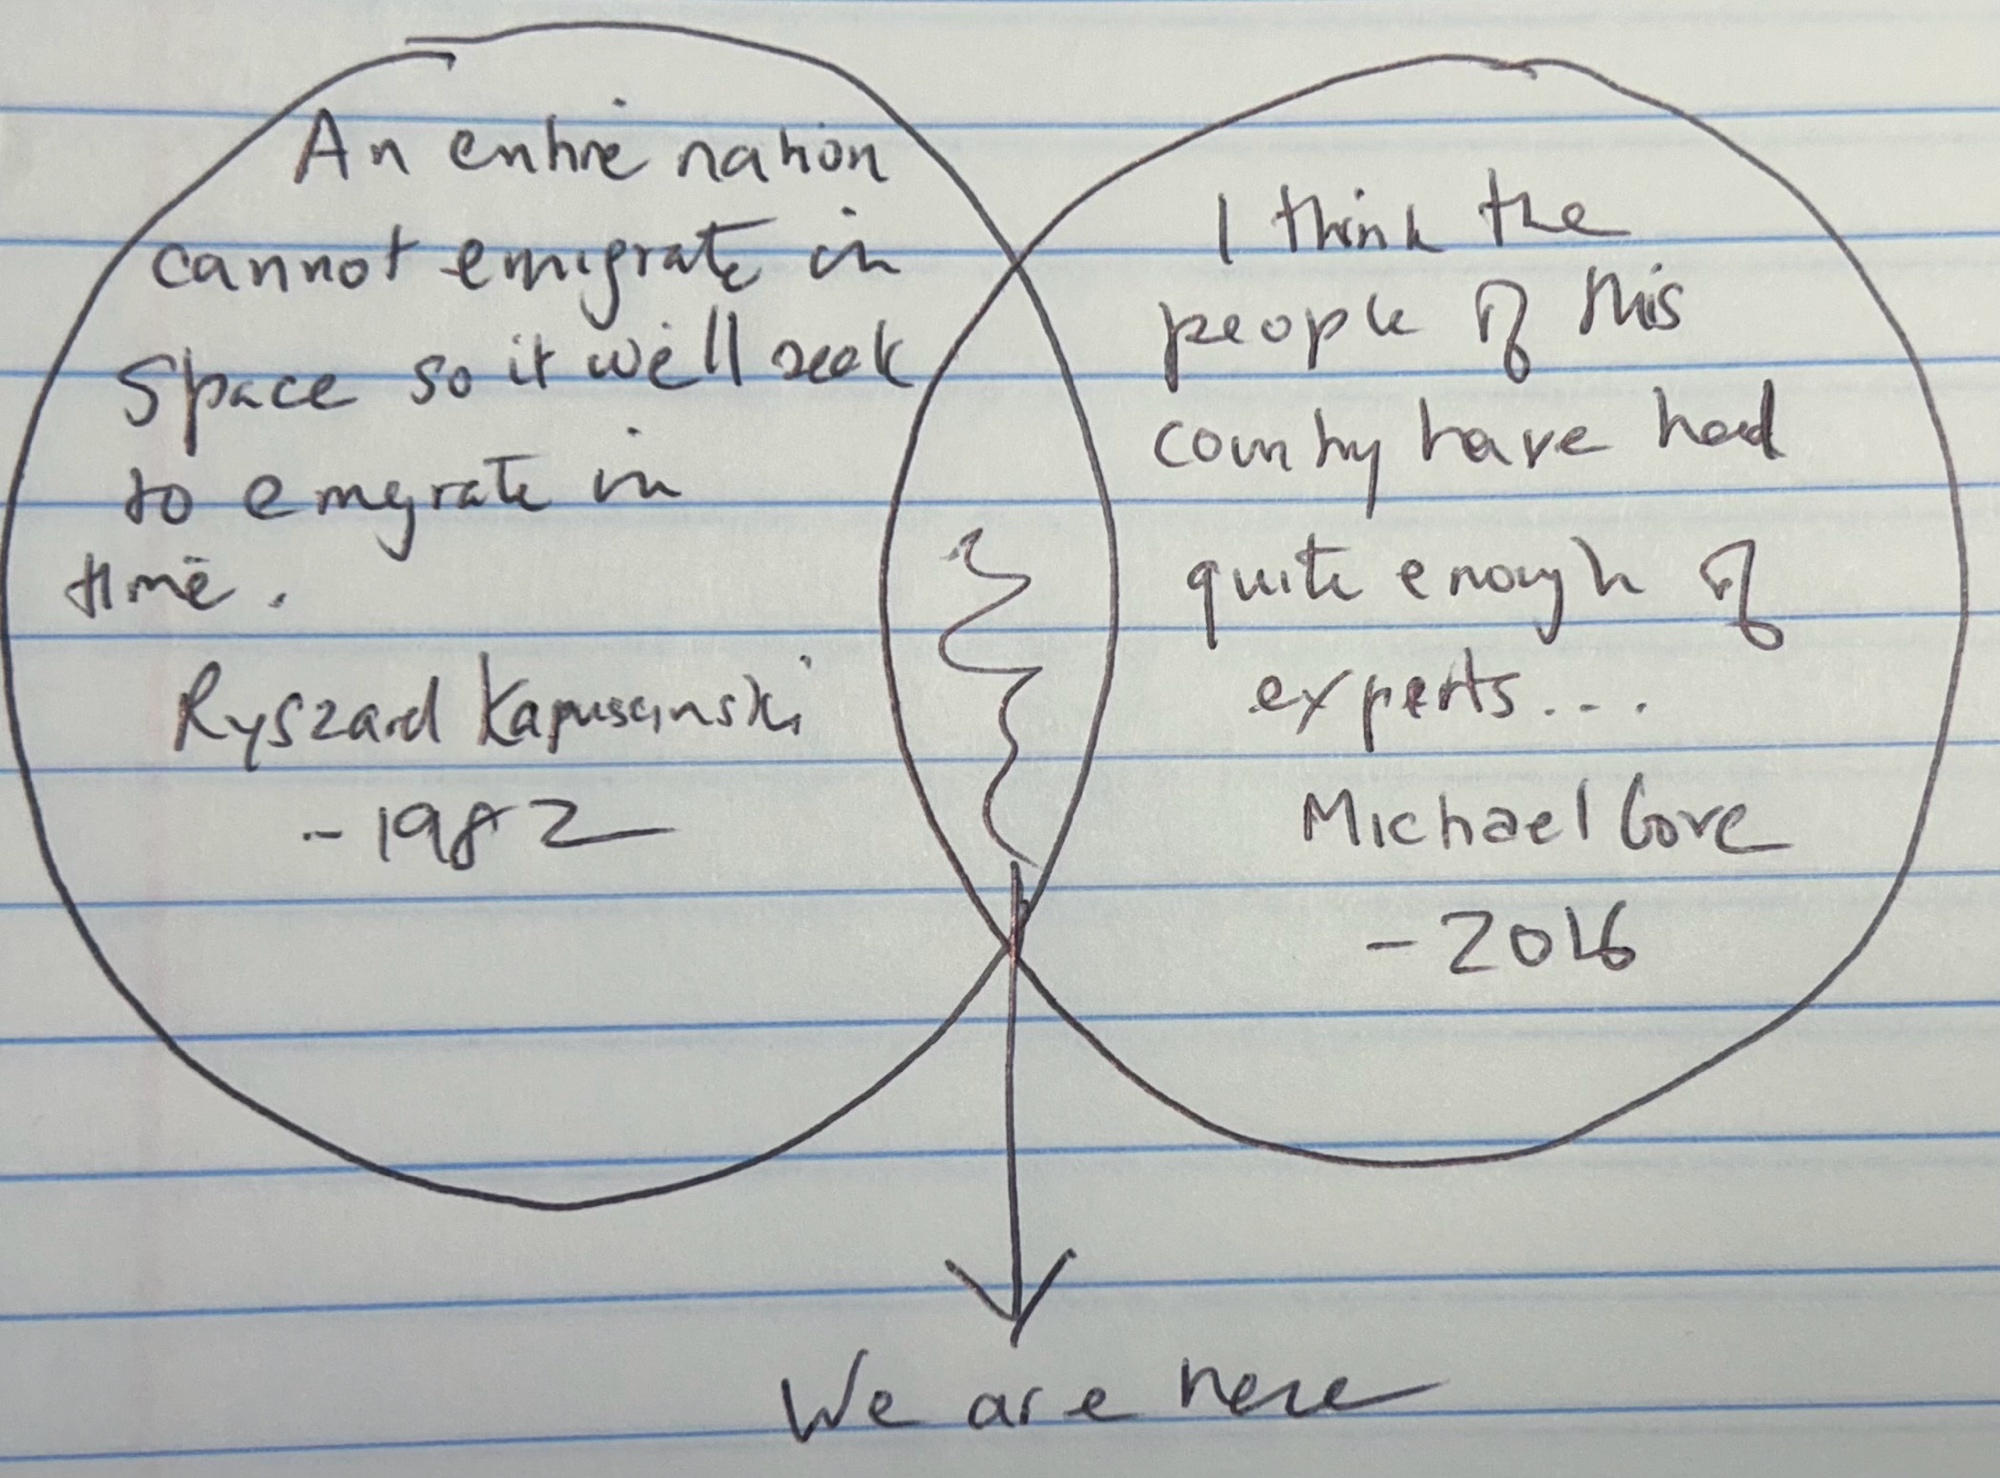 An entire nation
cannot emigrate in
space so it we'll seek
to emigrate in
time.
Ryszard Kapuscinski
- 1982
I think the
people of this
country have had
quite enough of
experts...
Michael Gove
- 2016
We are here